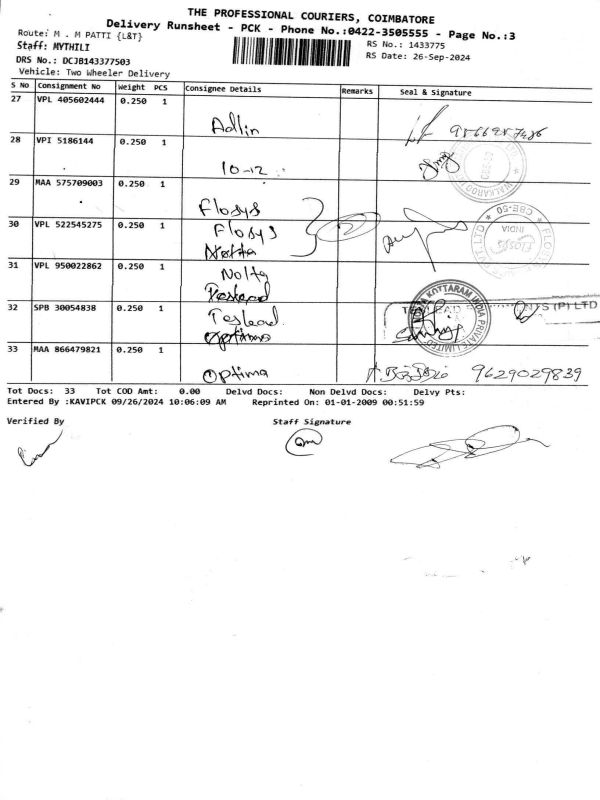 THE PROFESSIONAL COURIERS, COIMBATORE
Delivery Runsheet - PCK - Phone No.:0422-3505555 - Page No.:3
Route: M . M PATTI {L&T}
RS No.: 1433775
Staff: MYTHILI
RS Date: 26-Sep-2024
DRS No.: DCJB143377503
Vehicle: Two Wheeler Delivery
S No Consignment No Weight PCS Consignee Details Remarks Seal & Signature
27 VPL 405602444 0.250 1
Adlin
28 VPI 5186144 0.250 1
10-12
29 MAA 575709003 0.250 1
Flosys
30 VPL 522545275 0.250 1
Flosys
Nolta
31 VPL 950022862 0.250 1
Nolta
Teslead
32 SPB 30054838 0.250 1
Teslead
Optima
33 MAA 866479821 0.250 1
Optima 9629029839
Tot Docs: 33 Tot COD Amt: 0.00 Delvd Docs: Non Delvd Docs: Delvy Pts:
Entered By :KAVIPCK 09/26/2024 10:06:09 AM Reprinted On: 01-01-2009 00:51:59
Verified By Staff Signature